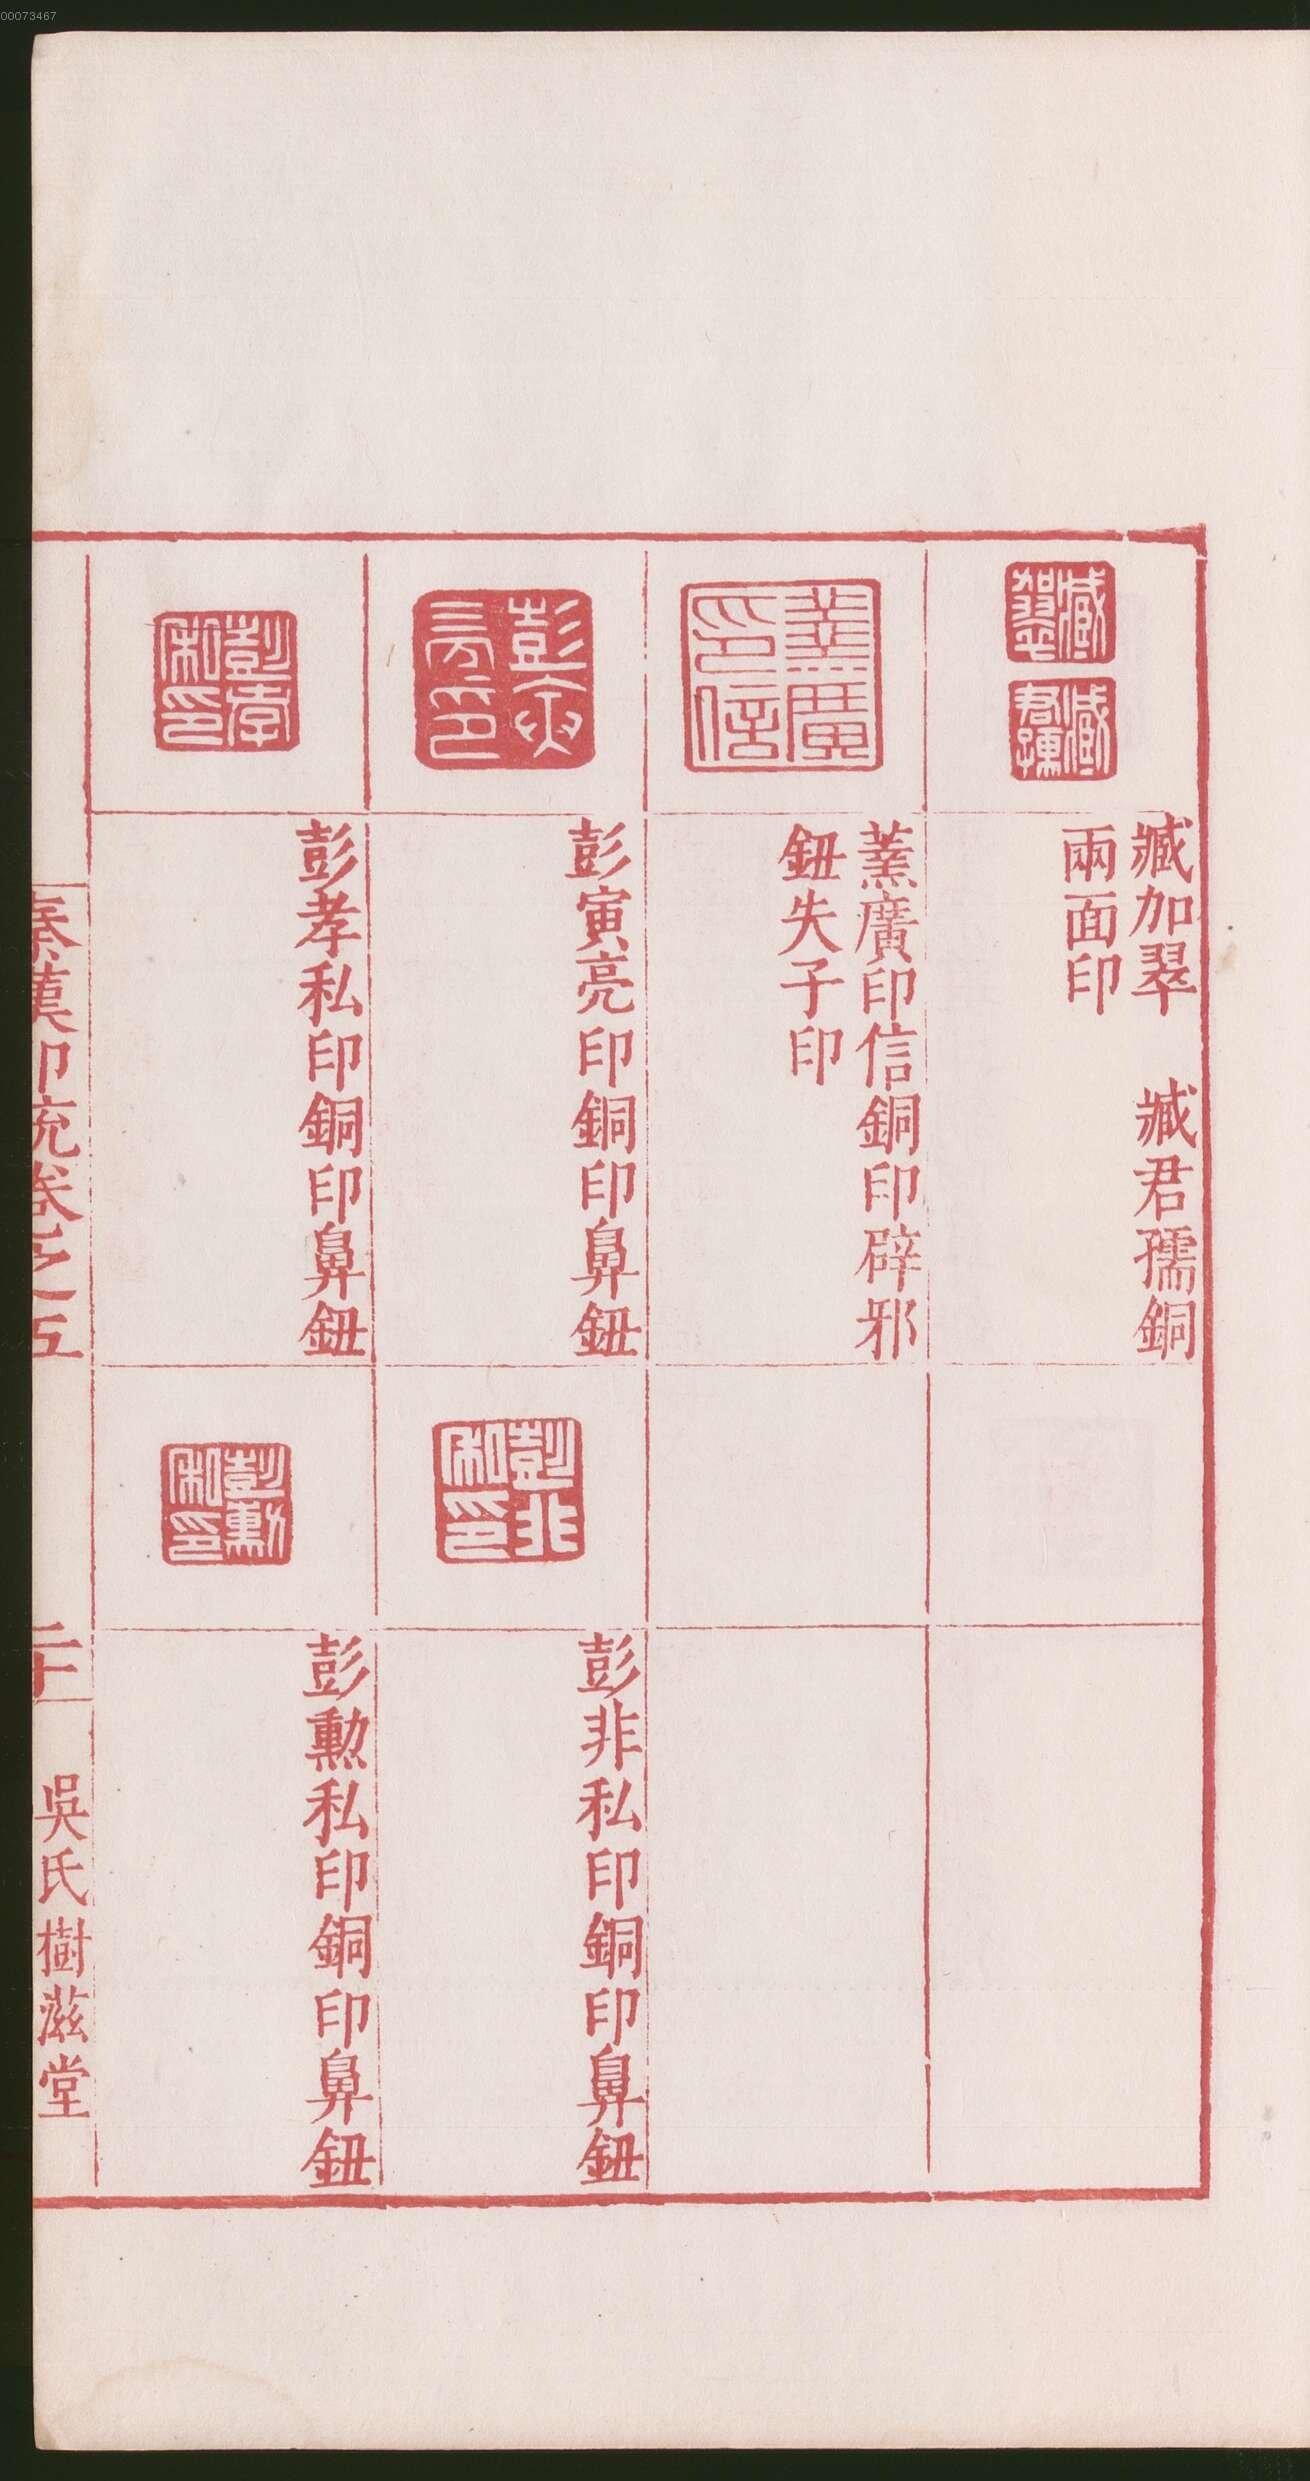 00073467
臧加翠　臧君孺銅
兩面印
藁廣印信銅印辟邪
鈕失子印
彭寅亮印銅印鼻鈕
彭非私印銅印鼻鈕
彭孝私印銅印鼻鈕
彭勲私印銅印鼻鈕
秦漢印統卷之五
二十
吳氏樹滋堂